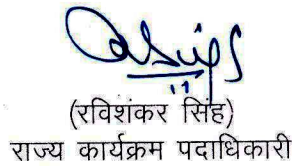 (रविशंकर सिंह)
राज्य कार्यक्रम पदाधिकारी